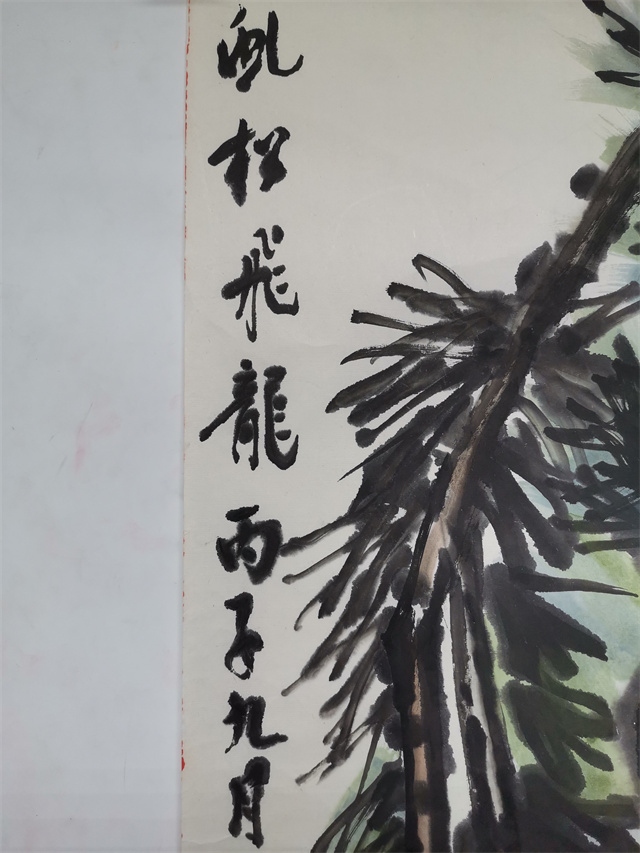 虬松飛龍丙子九月